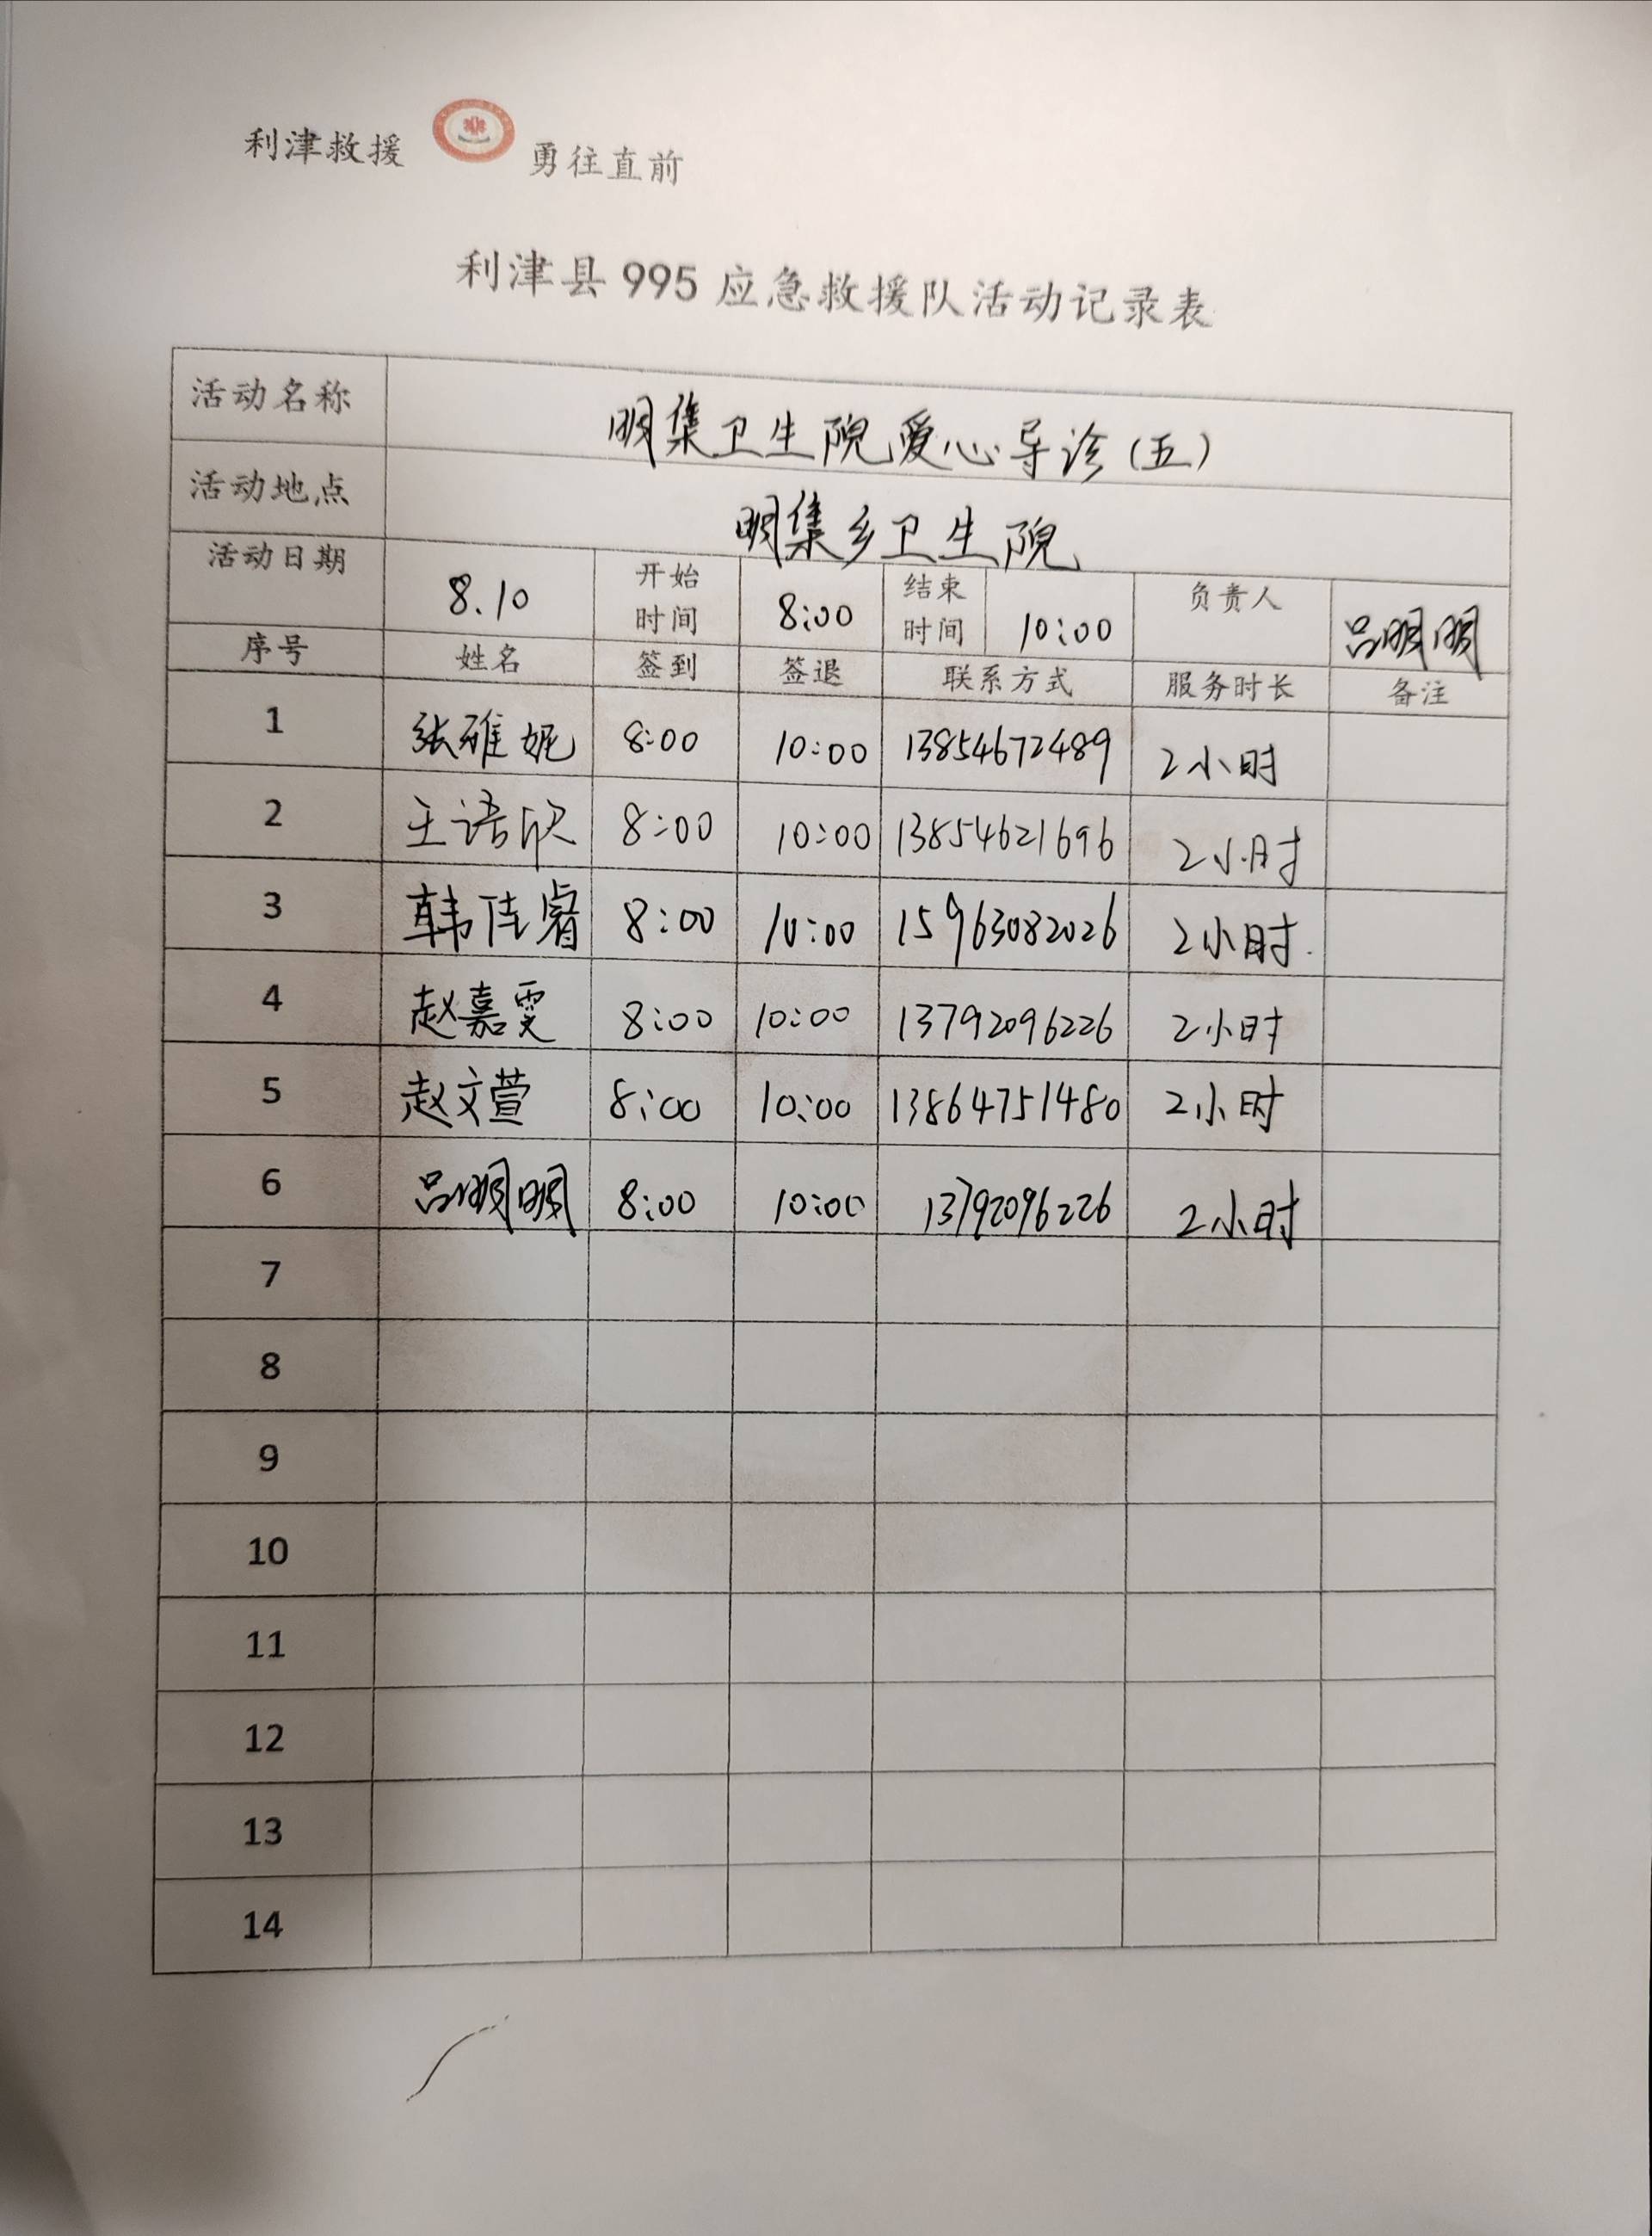 利津救援 勇往直前
利津县995应急救援队活动记录表
活动名称 明集卫生院爱心导诊(五)
活动地点 明集乡卫生院
活动日期 8.10 开始时间 8:00 结束时间 10:00 负责人 吕明明
序号 姓名 签到 签退 联系方式 服务时长 备注
1 张雅妮 8:00 10:00 13854672489 2小时
2 王语欣 8:00 10:00 13854621696 2小时
3 韩佳睿 8:00 10:00 15963082026 2小时.
4 赵嘉雯 8:00 10:00 13792096226 2小时
5 赵文萱 8:00 10:00 13864751480 2小时
6 吕明明 8:00 10:00 13792096226 2小时
7
8
9
10
11
12
13
14